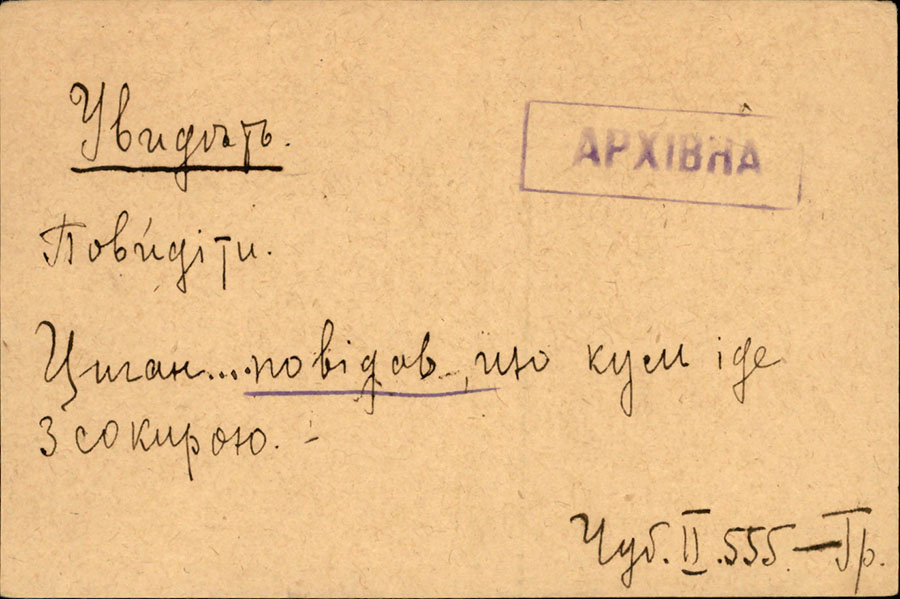 Увидѣть.
АРХІВНА
Пови́діти.
Циган...повідав, що кум іде
з сокирою. -
Чуб. II. 555. — Гр.